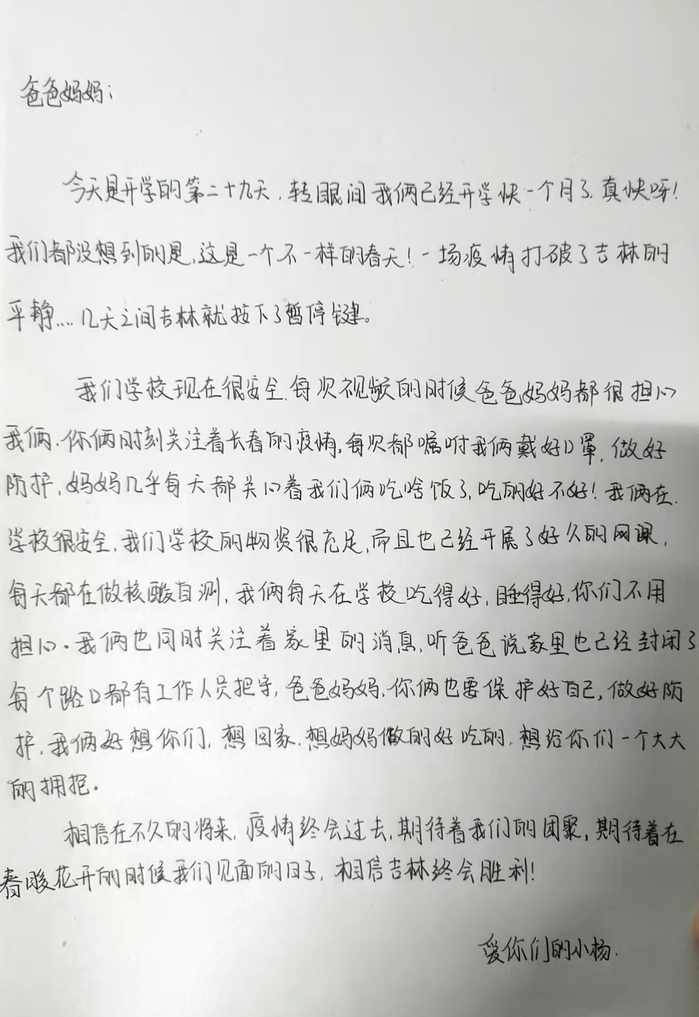 爸爸妈妈：
今天是开学的第二十九天，转眼间我俩已经开学快一个月了，真快呀！
我们都没想到的是，这是一个不一样的春天！一场疫情打破了吉林的
平静....几天之间吉林就按下了暂停键。
我们学校现在很安全，每次视频的时候爸爸妈妈都很担心
我俩，你俩时刻关注着长春的疫情，每次都嘱咐我俩戴好口罩，做好
防护，妈妈几乎每天都关心着我们俩吃啥饭了，吃的好不好！我俩在
学校很安全，我们学校的物资很充足，而且也已经开展了好久的网课，
每天都在做核酸自测，我俩每天在学校吃得好，睡得好，你们不用
担心。我俩也同时关注着家里的消息，听爸爸说家里也已经封闭了
每个路口都有工作人员把守，爸爸妈妈，你俩也要保护好自己，做好防
护，我俩好想你们，想回家，想妈妈做的好吃的，想给你们一个大大
的拥抱。
相信在不久的将来，疫情终会过去，期待着我们的团聚，期待着在
春暖花开的时候我们见面的日子，相信吉林终会胜利！
爱你们的小杨.